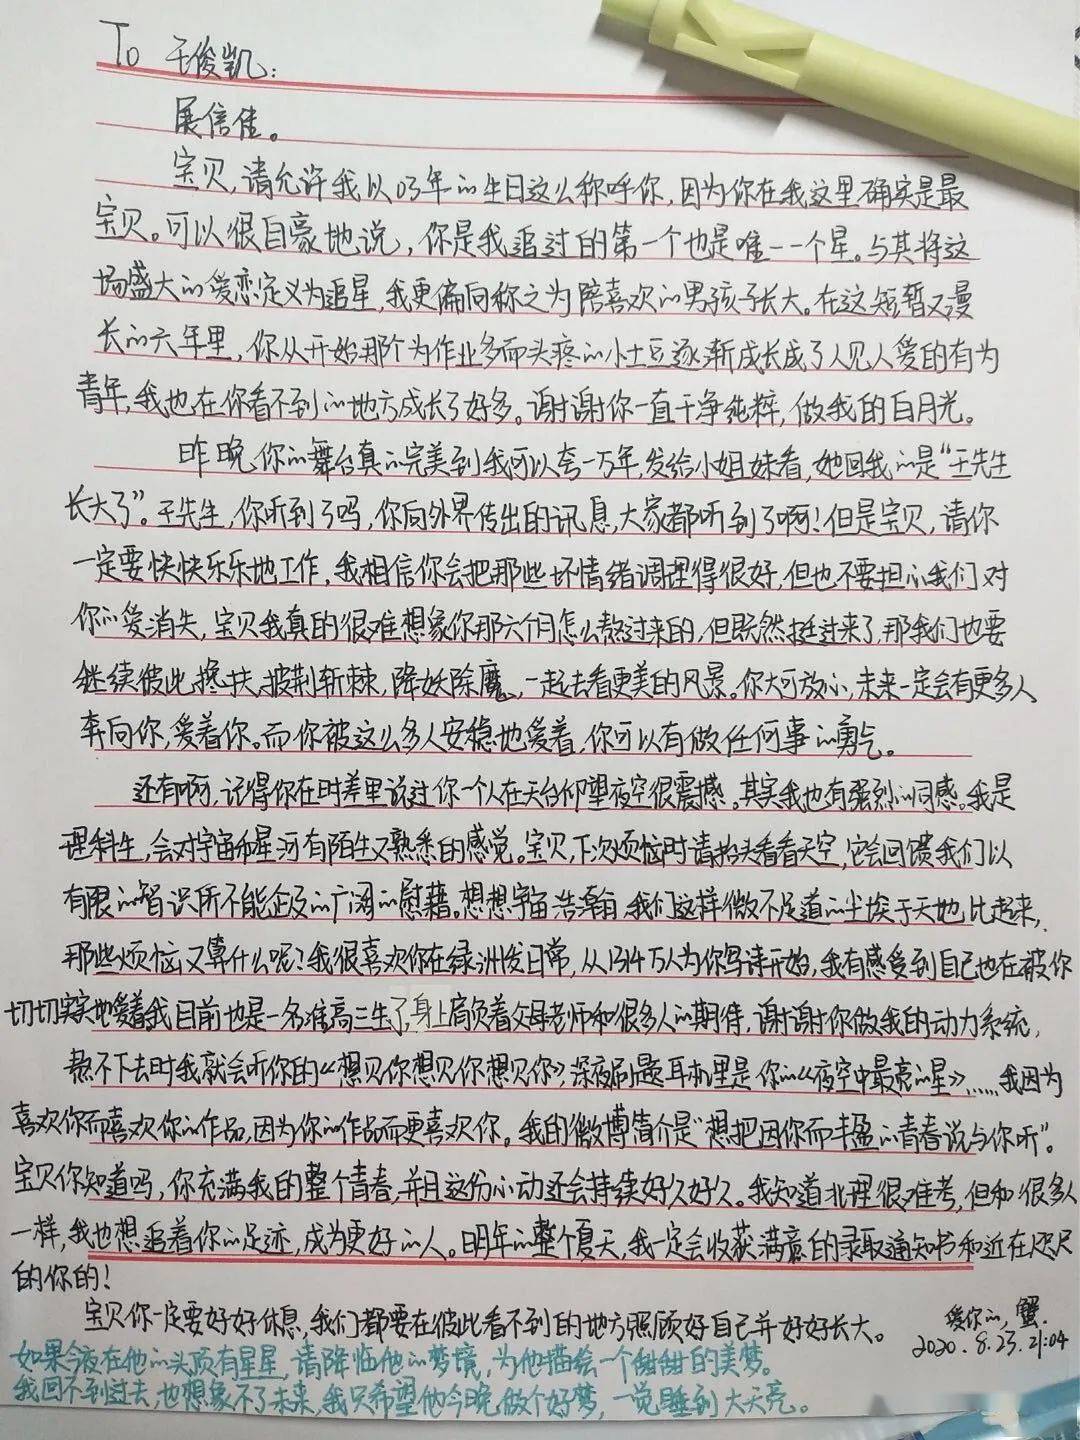 To 王俊凯:
展信佳。
宝贝,请允许我以03年的生日这么称呼你,因为你在我这里确实是最
宝贝。可以很自豪地说,你是我追过的第一个也是唯一一个星。与其将这
场盛大的爱恋定义为追星,我更偏向称之为陪喜欢的男孩子长大。在这短暂又漫
长的六年里,你从开始那个为作业多而头疼的小土豆逐渐成长成了人见人爱的有为
青年,我也在你看不到的地方成长了好多。谢谢你一直干净纯粹,做我的白月光。
昨晚你的舞台真的完美到我可以夸一万年,发给小姐妹看,她回我的是“王先生
长大了”。王先生,你听到了吗,你向外界传出的讯息,大家都听到了啊!但是宝贝,请你
一定要快快乐乐地工作,我相信你会把那些坏情绪调理得很好,但也不要担心我们对
你的爱消失,宝贝我真的很难想象你那六个月怎么熬过来的,但既然挺过来了,那我们也要
继续彼此搀扶,披荆斩棘,降妖除魔,一起去看更美的风景。你大可放心,未来一定会有更多人
奔向你,爱着你。而你被这么多人安稳地爱着,你可以有做任何事的勇气。
还有啊,记得你在时差里说过你一个人在天台仰望夜空很震撼。其实我也有强烈的同感。我是
理科生,会对宇宙和星河有陌生又熟悉的感觉。宝贝,下次烦恼时请抬头看看天空,它会回馈我们以
有限的智识所不能企及的广阔的慰藉。想想宇宙浩瀚,我们这样微不足道的尘埃于天地比起来,
那些烦恼又算什么呢?我很喜欢你在绿洲发日常,从1314万人为你写诗开始,我有感受到自己也在被你
切切实实地爱着我目前也是一名准高三生了,身上肩负着父母老师和很多人的期待,谢谢你做我的动力系统,
熬不下去时我就会听你的《想见你想见你想见你》,深夜刷题耳机里是你的《夜空中最亮的星》……我因为
喜欢你而喜欢你的作品,因为你的作品而更喜欢你。我的微博简介是“想把因你而丰盈的青春说与你听”。
宝贝你知道吗,你充满我的整个青春,并且这份心动还会持续好久好久。我知道北理很难考,但和很多人
一样,我也想追着你的足迹,成为更好的人。明年的整个夏天,我一定会收获满意的录取通知书和近在咫尺
的你的!
宝贝你一定要好好休息,我们都要在彼此看不到的地方照顾好自己并好好长大。
爱你的,蟹.
2020.8.23.21:04
如果今夜在他的头顶有星星,请降临他的梦境,为他描绘一个甜甜的美梦。
我回不到过去,也想象不了未来,我只希望他今晚做个好梦,一觉睡到大天亮。